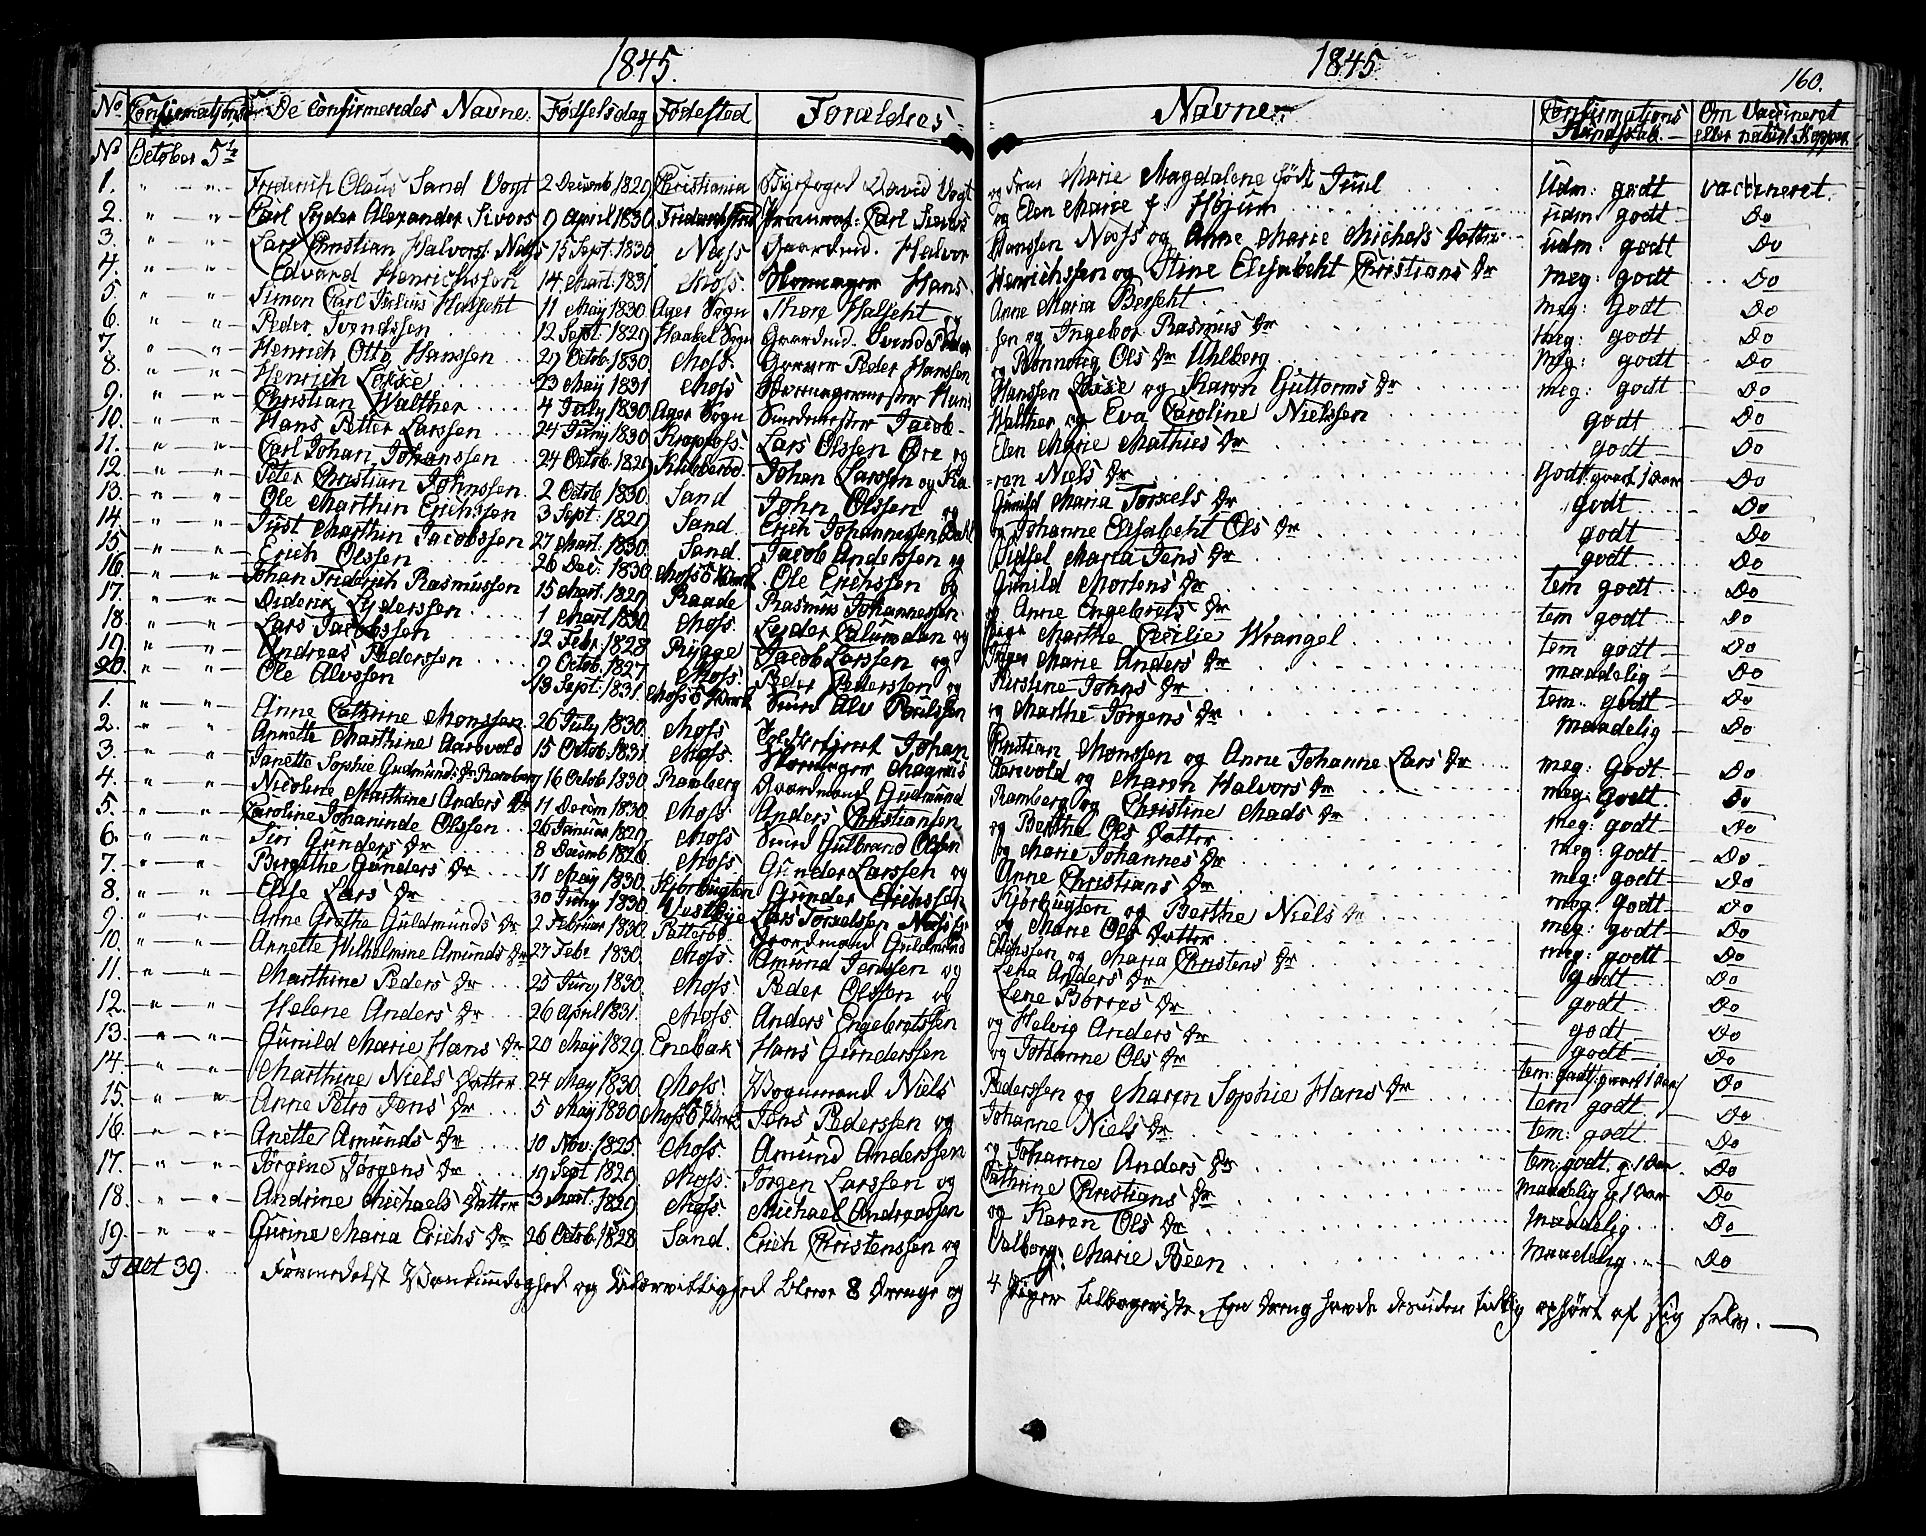 1845.
1845
160.
No Confirmations De Confirmerides Navne. Fødselsdag Fødested Forældres Navne. Confirmations Kundskab. Om Vaccineret eller naturl. Kopper
No October 5te
1. " — " — Friderich Claus Sand Vogt 2 Decemb 1829 Christiania Byefoged David Vogt og Frue Marie Magdalene født Juul Udm: godt vaccineret.
2. " — " — Carl Lyder Alexander Sivers 9 April 1830 Friderichstad Carl Sivers og Elen Marie f: Højum udm: godt Do
3. " — " — Lars Christian Halvors: Næss 15 Sept. 1830. Næss Gaardmd. Halvor Hanssen Næss og Anne Marie Michels Datter udm: godt Do
4. " — " — Edvard Henrichssen 14 Mart. 1831 Moss. Hans Henrichssen og Stine Elisabeht Christians Dr meg: godt Do
5. " — " — Simon Carl Julius Halfeht 11 May 1830 Ager Sogn Thore Halfeht og Anne Maria Berfeht meg: Godt Do
6. " — " — Peder Svendssen 12 Sept. 1829 Haabel Sogn Gaardmd. Svend Peder sen og Ingebor Rasmus Dr meg: godt Do
7. " — " — Henrich Otto Hanssen 29 Octob. 1830. Moss. Peder Hanssen og Rønnoug Ols Dr Uhlborg Meg: godt Do
8. " — " — Henrich Losse 23 May 1831 Moss Hans Hanssen Losse og Karen Guttorms Dr meg: godt Do
9. " — " — Christian Walther 4 July 1830 Ager Sogn Jacob Walther og Eva Caroline Nielssen godt Do
10. " — " — Hans Petter Larssen 24 Juny 1830 Lars Olssen Øre og Elen Marie Mathies Dr godt Do
11. " — " — Carl Johan Johanssen 24 Octob. 1829 Johan Larssen og Ka ren Niels Dr Godt: qvart 1 Aar Do
12. " — " — Peter Christian Johnssen 2 Octob 1830. Sand John Olssen og Gunild Maria Torkels Dr godt Do
13. " — " — Ole Marthin Erichssen 3 Sept: 1829. Sand Erich Johannessen og Johanne Elisabeht Ols Dr godt Do
14. " — " — Just Marthin Jacobssen 27 Mart. 1830. Sand Jacob Anderssen og Sidsel Maria Jens Dr godt Do
15. " — " — Erich Olssen 26 Dec: 1830 Moss Ole Erichssen og Gunild Mortens Dr tem godt Do
16. " — " — Johan Friderich Rasmussen 15 Mart. 1829. Raade Rasmus Johannessen og Anne Engebrets Dr tem godt Do
17. " — " — Diderik Lyderssen 1 Mart 1830. Moss. Lyder Marthe Cecilie Wrangel tem godt Do
18. " — " — Lars Jacobssen 12 Febr. 1828 Rygge Jacob Larssen og Inger Marie Anders Dr maadelig Do
19. " — " — Andreas Pederssen 9 Octob. 1827 Moss. Peder Pederssen og Kirstine Johns Dr tem. godt Do
20. " — " — Ole Alvssen 13 Sept: 1831. Moss Smed Alv Poulssen og Marthe Jørgens Dr maadelig Do
1. " — " — Anne Cathrine Monssen 26 July 1830. Moss. Johan Christian Monssen og Anne Johanne Lars Dr meg: Godt Do
2. " — " — Annette Marthine Aarsvold 15 Octob. 1831 Moss. Magnus Aarsvold og Maren Halvors Dr meg: Godt Do
3. " — " — Janette Sophie Gudmunds Dr Ramberg 16 Octob. 1830. Ramberg Gaardmand Gudmund Ramberg og Christine Mads Dr meg: godt Do
4. " — " — Nicoline Marthine Anders Dr 11 Decem 1830. Moss. Anders Christiansen og Berthe Ols Datter meg: godt Do
5. " — " — Caroline Johaninde Olssen 26 Januar 1829 Moss Smed Gulbrand Olssen og Marie Johannes Dr meg: godt Do
6. " — " — Siri Gunders Dr 8 Decemb 1826. Moss Gunder Larssen og Anne Christians Dr meg: godt Do
7. " — " — Bergithe Gunders Dr 11 May 1830. Kjørbugten Gunder Erichssen Kjørbugten og Berthe Niels Dr meg: godt Do
8. " — " — Elise Lars Dr 30 Juny 1830 Vestbye Lars Torkelssen og Marie Ols Datter meg: godt Do
9. " — " — Anne Grethe Guldmunds Dr 2 Februar 1830. Gaardmand Guldmund Erichssen og Maria Christens Dr meg: godt Do
10. " — " — Annette Wilhelmine Amunds Dr 27 Febr. 1830. Moss. Amund Jenssen og Lena Anders Dr godt Do
11. " — " — Marthine Peders Dr 25 Juny 1830. Moss. Peder Olssen og Lene Børres Dr godt Do
12. " — " — Helene Anders Dr 26 April 1831. Moss. Anders Engebretssen og Helvig Anders Dr godt Do
13. " — " — Gunild Marie Hans Dr 20 May 1829 Enebak Hans Gunderssen og Johanne Ols Dr godt Do
14. " — " — Marthine Niels Datter 24 May 1830. Moss. Vognmand Niels Pederssen og Maren Sophie Hans Dr tem: godt: qvart 1 Aar Do
15. " — " — Anne Petro Jens Dr 5 May 1830 Moss Jens Pederssen og Johanne Niels Dr tem godt Do
16. " — " — Anette Amunds Dr 10 Nov: 1825. Moss. Amund Anderssen og Johanne Anders Dr tem: godt Do
17. " — " — Jørgine Jørgens Dr 19 Sept 1829. Moss. Jørgen Larssen og Cathrine Christians Dr tem: godt. q. 1 Aar. Do
18. " — " — Andrine Michaels Datter 3 Mart: 1829 Moss. Michael Andreassen og Karen Ols Dr Maadelig q. 1 Aar Do
19. " — " — Gurine Maria Erichs Dr 26 Octob. 1828. Sand. Erich Christenssen og Valborg Marie Been Maadelig Do
Ialt 39. Formedelst Vankundighed og Uefterrettlighed bleve 8 Drenge og 4 Piger tilbageviste. En Dreng havde desuden ophørt af sig selv.